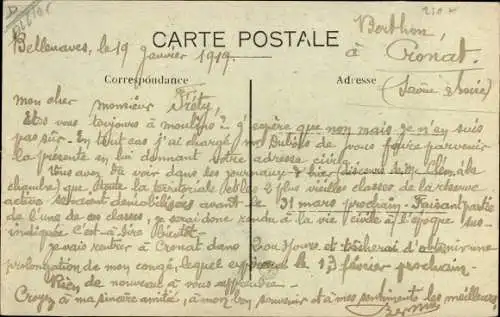 Berthon,
à
Cronat.
(Saône & Loire)
Bellenaves, le 19 Janvier 1919.
CARTE POSTALE
Correspondance
Adresse
Mon cher monsieur Fréty,
Etes vous toujours à moulins? J'espère que non mais je n'en suis
pas sûr. En tout cas j'ai chargé Dubois de vous faire parvenir
la présente en lui donnant votre adresse civile
Vous avez dû voir dans les journaux d'hier discours de Mr Clém. à la
chambre, que toute la territoriale et les 2 plus vieilles classes de la réserve
active seraient démobilisées avant le 31 mars prochain. Faisant partie
de l'une de ces classes, je serai donc rendu à la vie civile à l'époque sus-
indiquée c'est-à-dire bientôt.
je vais rentrer à Cronat dans jours et tâcherai d'obtenir une
prolongation de mon congé, lequel expirera le 13 février prochain.
Rien de nouveau à vous apprendre.
Croyez à ma sincère amitié, à mon bon souvenir et à mes sentiments les meilleurs